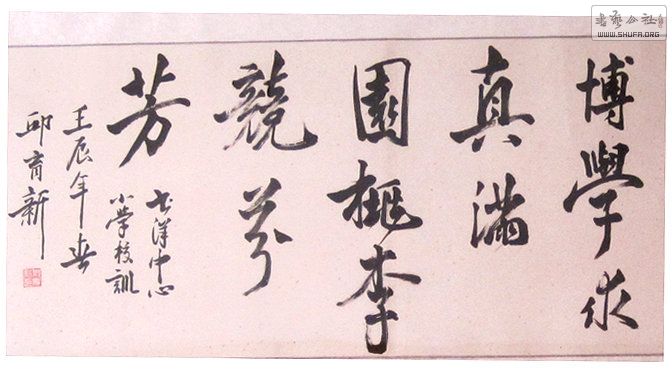 博學求
真滿
園桃李
競芬
芳
書洋中心
小學校訓
壬辰年春
邱育新
书艺公社
WWW.SHUFA.ORG